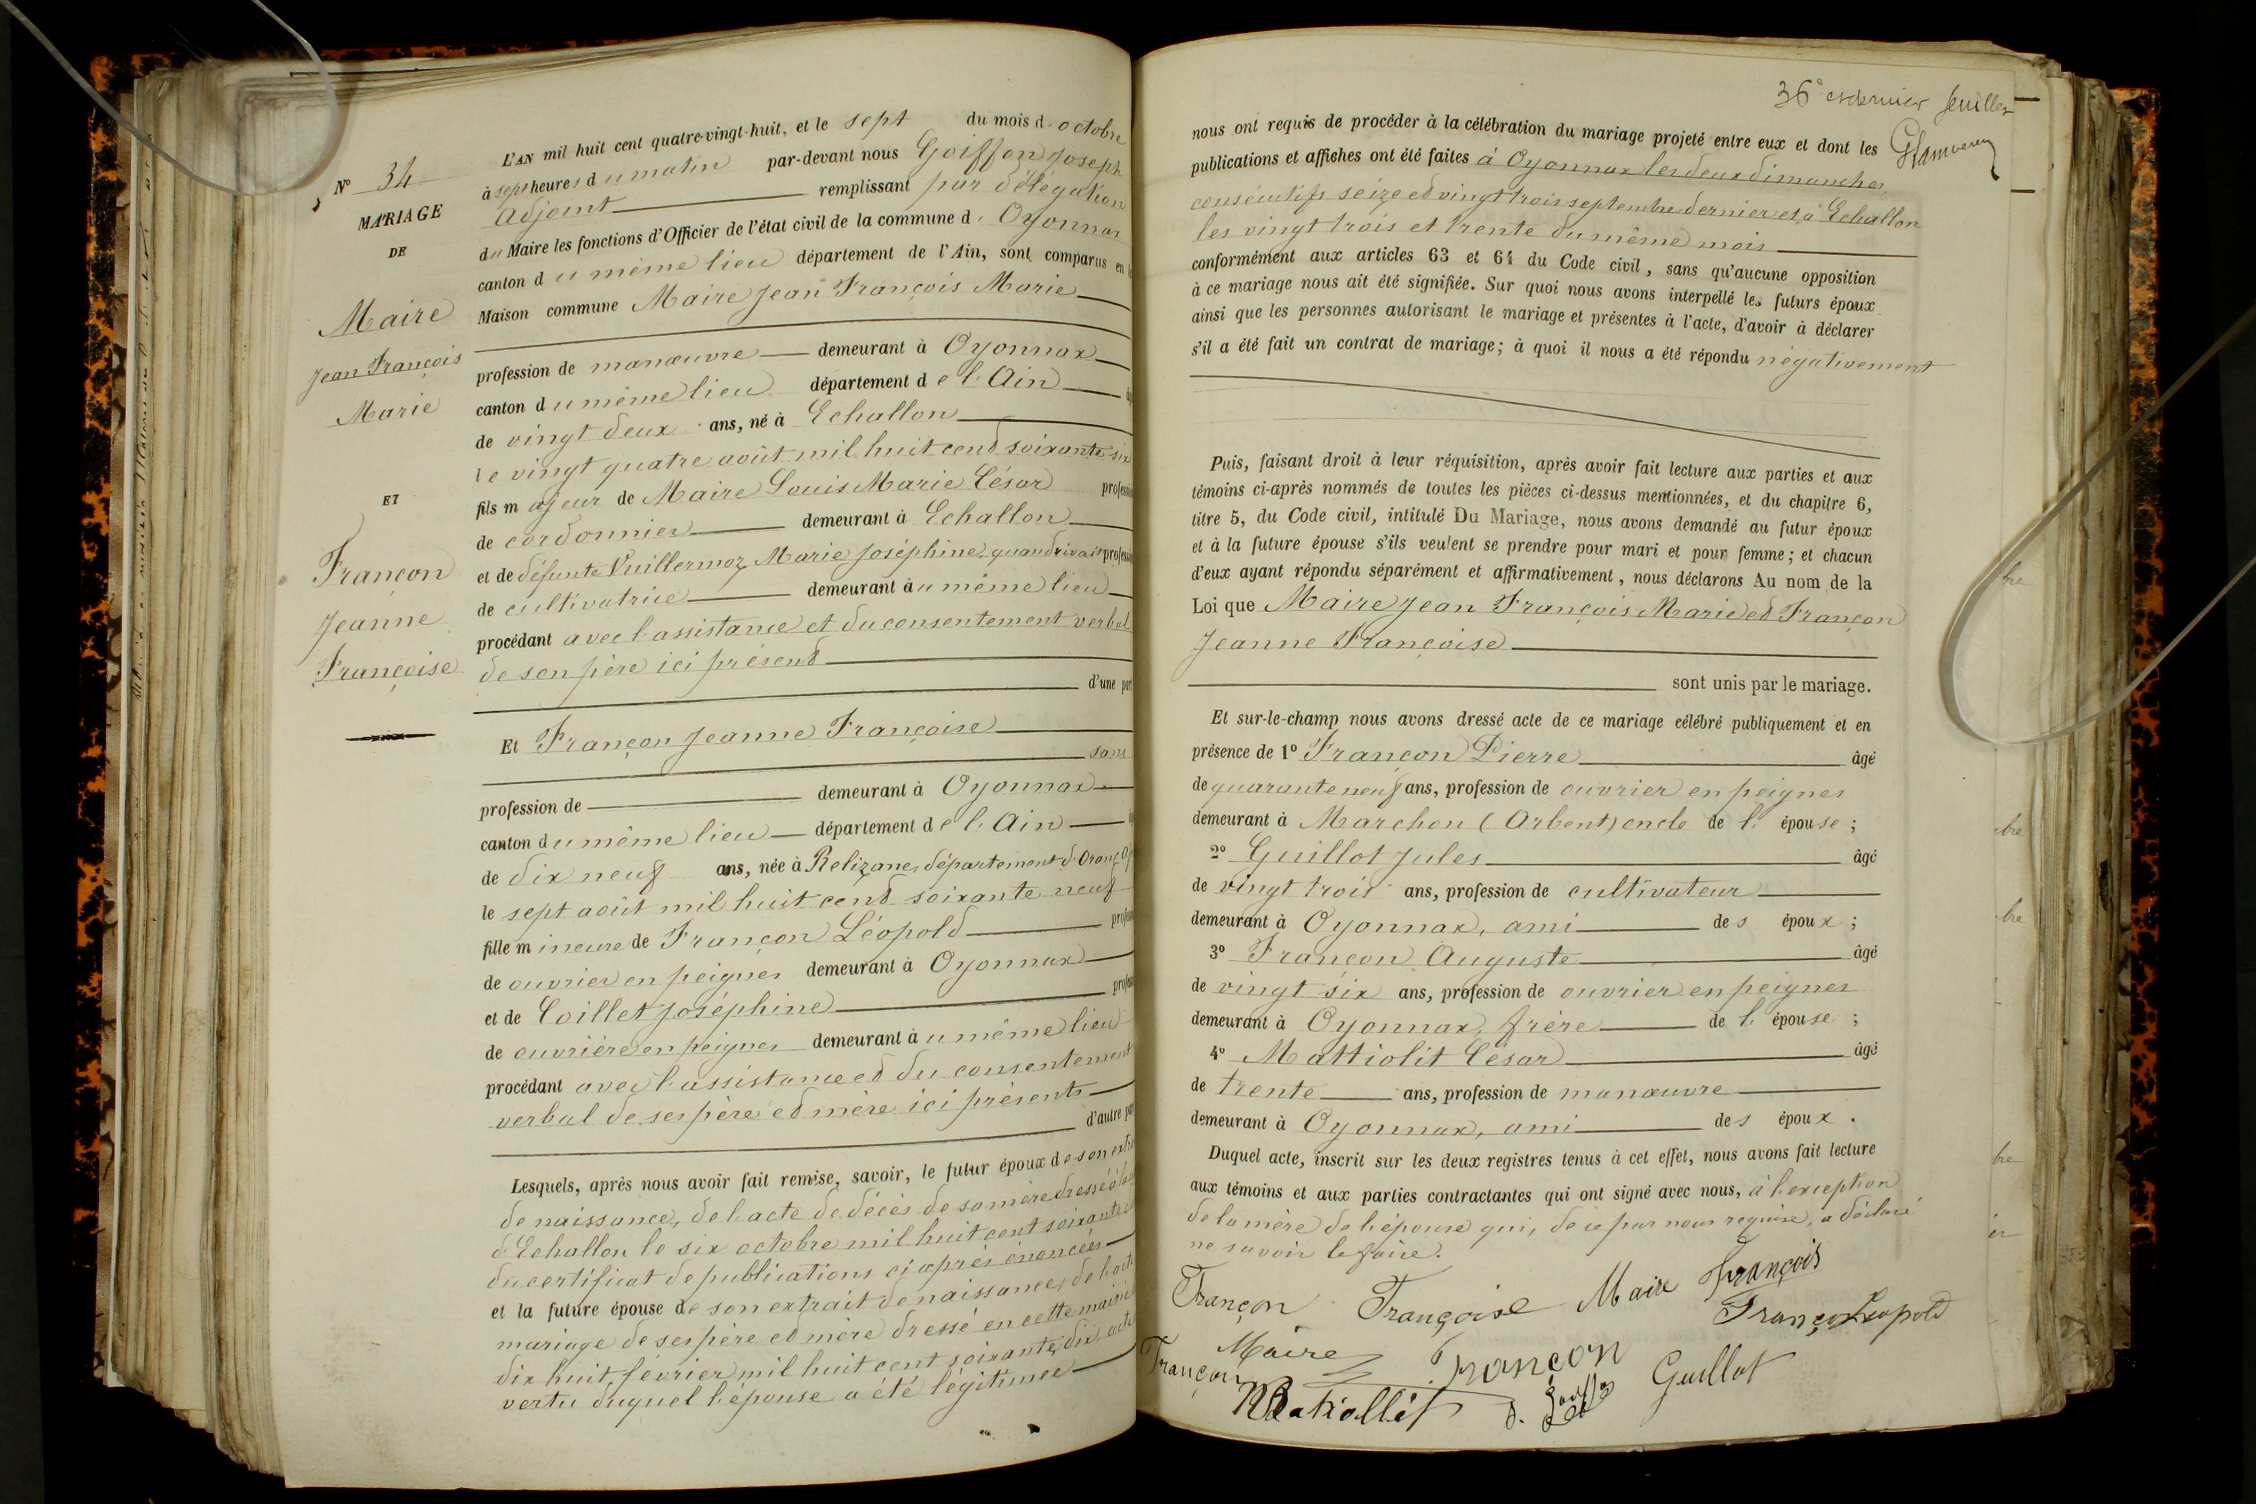 N° 34
MARIAGE
DE
Maire
Jean François
Marie
ET
Françon
Jeanne
Françoise
L'AN mil huit cent quatre-vingt-huit, et le sept du mois d' octobre
à sept heures du matin par-devant nous Goiffon Joseph
adjoint remplissant par délégation
du Maire les fonctions d'Officier de l'état civil de la commune d' Oyonnax
canton du même lieu département de l'Ain, sont comparus en la
Maison commune Maire Jean François Marie
profession de manœuvre demeurant à Oyonnax
canton du même lieu département de l'Ain
de vingt deux ans, né à Echallon
le vingt quatre août mil huit cent soixante six
fils majeur de Maire Louis Marie César profession
de cordonnier demeurant à Echallon
et de défunte Vuillermoz Marie Joséphine, quand vivait profession
de cultivatrice demeurant au même lieu
procédant avec l'assistance et du consentement verbal
de son père ici présent
d'une part
Et Françon Jeanne Françoise
sans
profession de demeurant à Oyonnax
canton du même lieu département de l'Ain
de dix neuf ans, née à Relizane, département d'Oran
le sept août mil huit cent soixante neuf
fille mineure de Françon Léopold
de ouvrier en peignes demeurant à Oyonnax
et de Coillet Joséphine
de ouvrière en peignes demeurant au même lieu
procédant avec l'assistance et du consentement
verbal de ses père et mère ici présents
d'autre part
Lesquels, après nous avoir fait remise, savoir, le futur époux de son extrait
de naissance, de l'acte de décès de sa mère dressé à
d'Echallon le six octobre mil huit cent soixante
du certificat de publications ci après énoncées
et la future épouse de son extrait de naissance, de l'acte
mariage de ses père et mère dressé en cette mairie
dix huit février mil huit cent soixante dix, acte
vertu duquel l'épouse a été légitimée
36e et dernier feuillet
nous ont requis de procéder à la célébration du mariage projeté entre eux et dont les
publications et affiches ont été faites à Oyonnax les deux dimanches
consécutifs seize et vingt trois septembre dernier et à Echallon
les vingt trois et trente du même mois
conformément aux articles 63 et 64 du Code civil, sans qu'aucune opposition
à ce mariage nous ait été signifiée. Sur quoi nous avons interpellé les futurs époux
ainsi que les personnes autorisant le mariage et présentes à l'acte, d'avoir à déclarer
s'il a été fait un contrat de mariage; à quoi il nous a été répondu négativement
Puis, faisant droit à leur réquisition, après avoir fait lecture aux parties et aux
témoins ci-après nommés de toutes les pièces ci-dessus mentionnées, et du chapitre 6,
titre 5, du Code civil, intitulé Du Mariage, nous avons demandé au futur époux
et à la future épouse s'ils veulent se prendre pour mari et pour femme; et chacun
d'eux ayant répondu séparément et affirmativement, nous déclarons Au nom de la
Loi que Maire Jean François Marie et Françon
Jeanne Françoise
sont unis par le mariage.
Et sur-le-champ nous avons dressé acte de ce mariage célébré publiquement et en
présence de 1° Françon Pierre âgé
de quarante neuf ans, profession de ouvrier en peignes
demeurant à Marchon (Arbent) oncle de l' épouse;
2° Guillot Jules âgé
de vingt trois ans, profession de cultivateur
demeurant à Oyonnax, ami des époux;
3° Françon Auguste âgé
de vingt six ans, profession de ouvrier en peignes
demeurant à Oyonnax, frère de l' épouse;
4° Mattiolit César âgé
de trente ans, profession de manœuvre
demeurant à Oyonnax, ami des époux.
Duquel acte, inscrit sur les deux registres tenus à cet effet, nous avons fait lecture
aux témoins et aux parties contractantes qui ont signé avec nous, à l'exception
de la mère de l'épouse qui, de ce par nous requise, a déclaré
ne savoir le faire.
Françon Françoise Maire François
Françon Léopold
Maire Françon Guillot
Françon